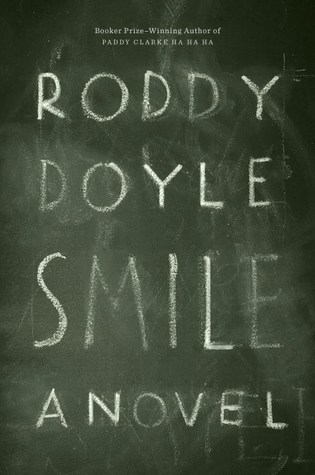 Booker Prize–Winning Author of
PADDY CLARKE HA HA HA
RODDY
DOYLE
SMILE
A NOVEL